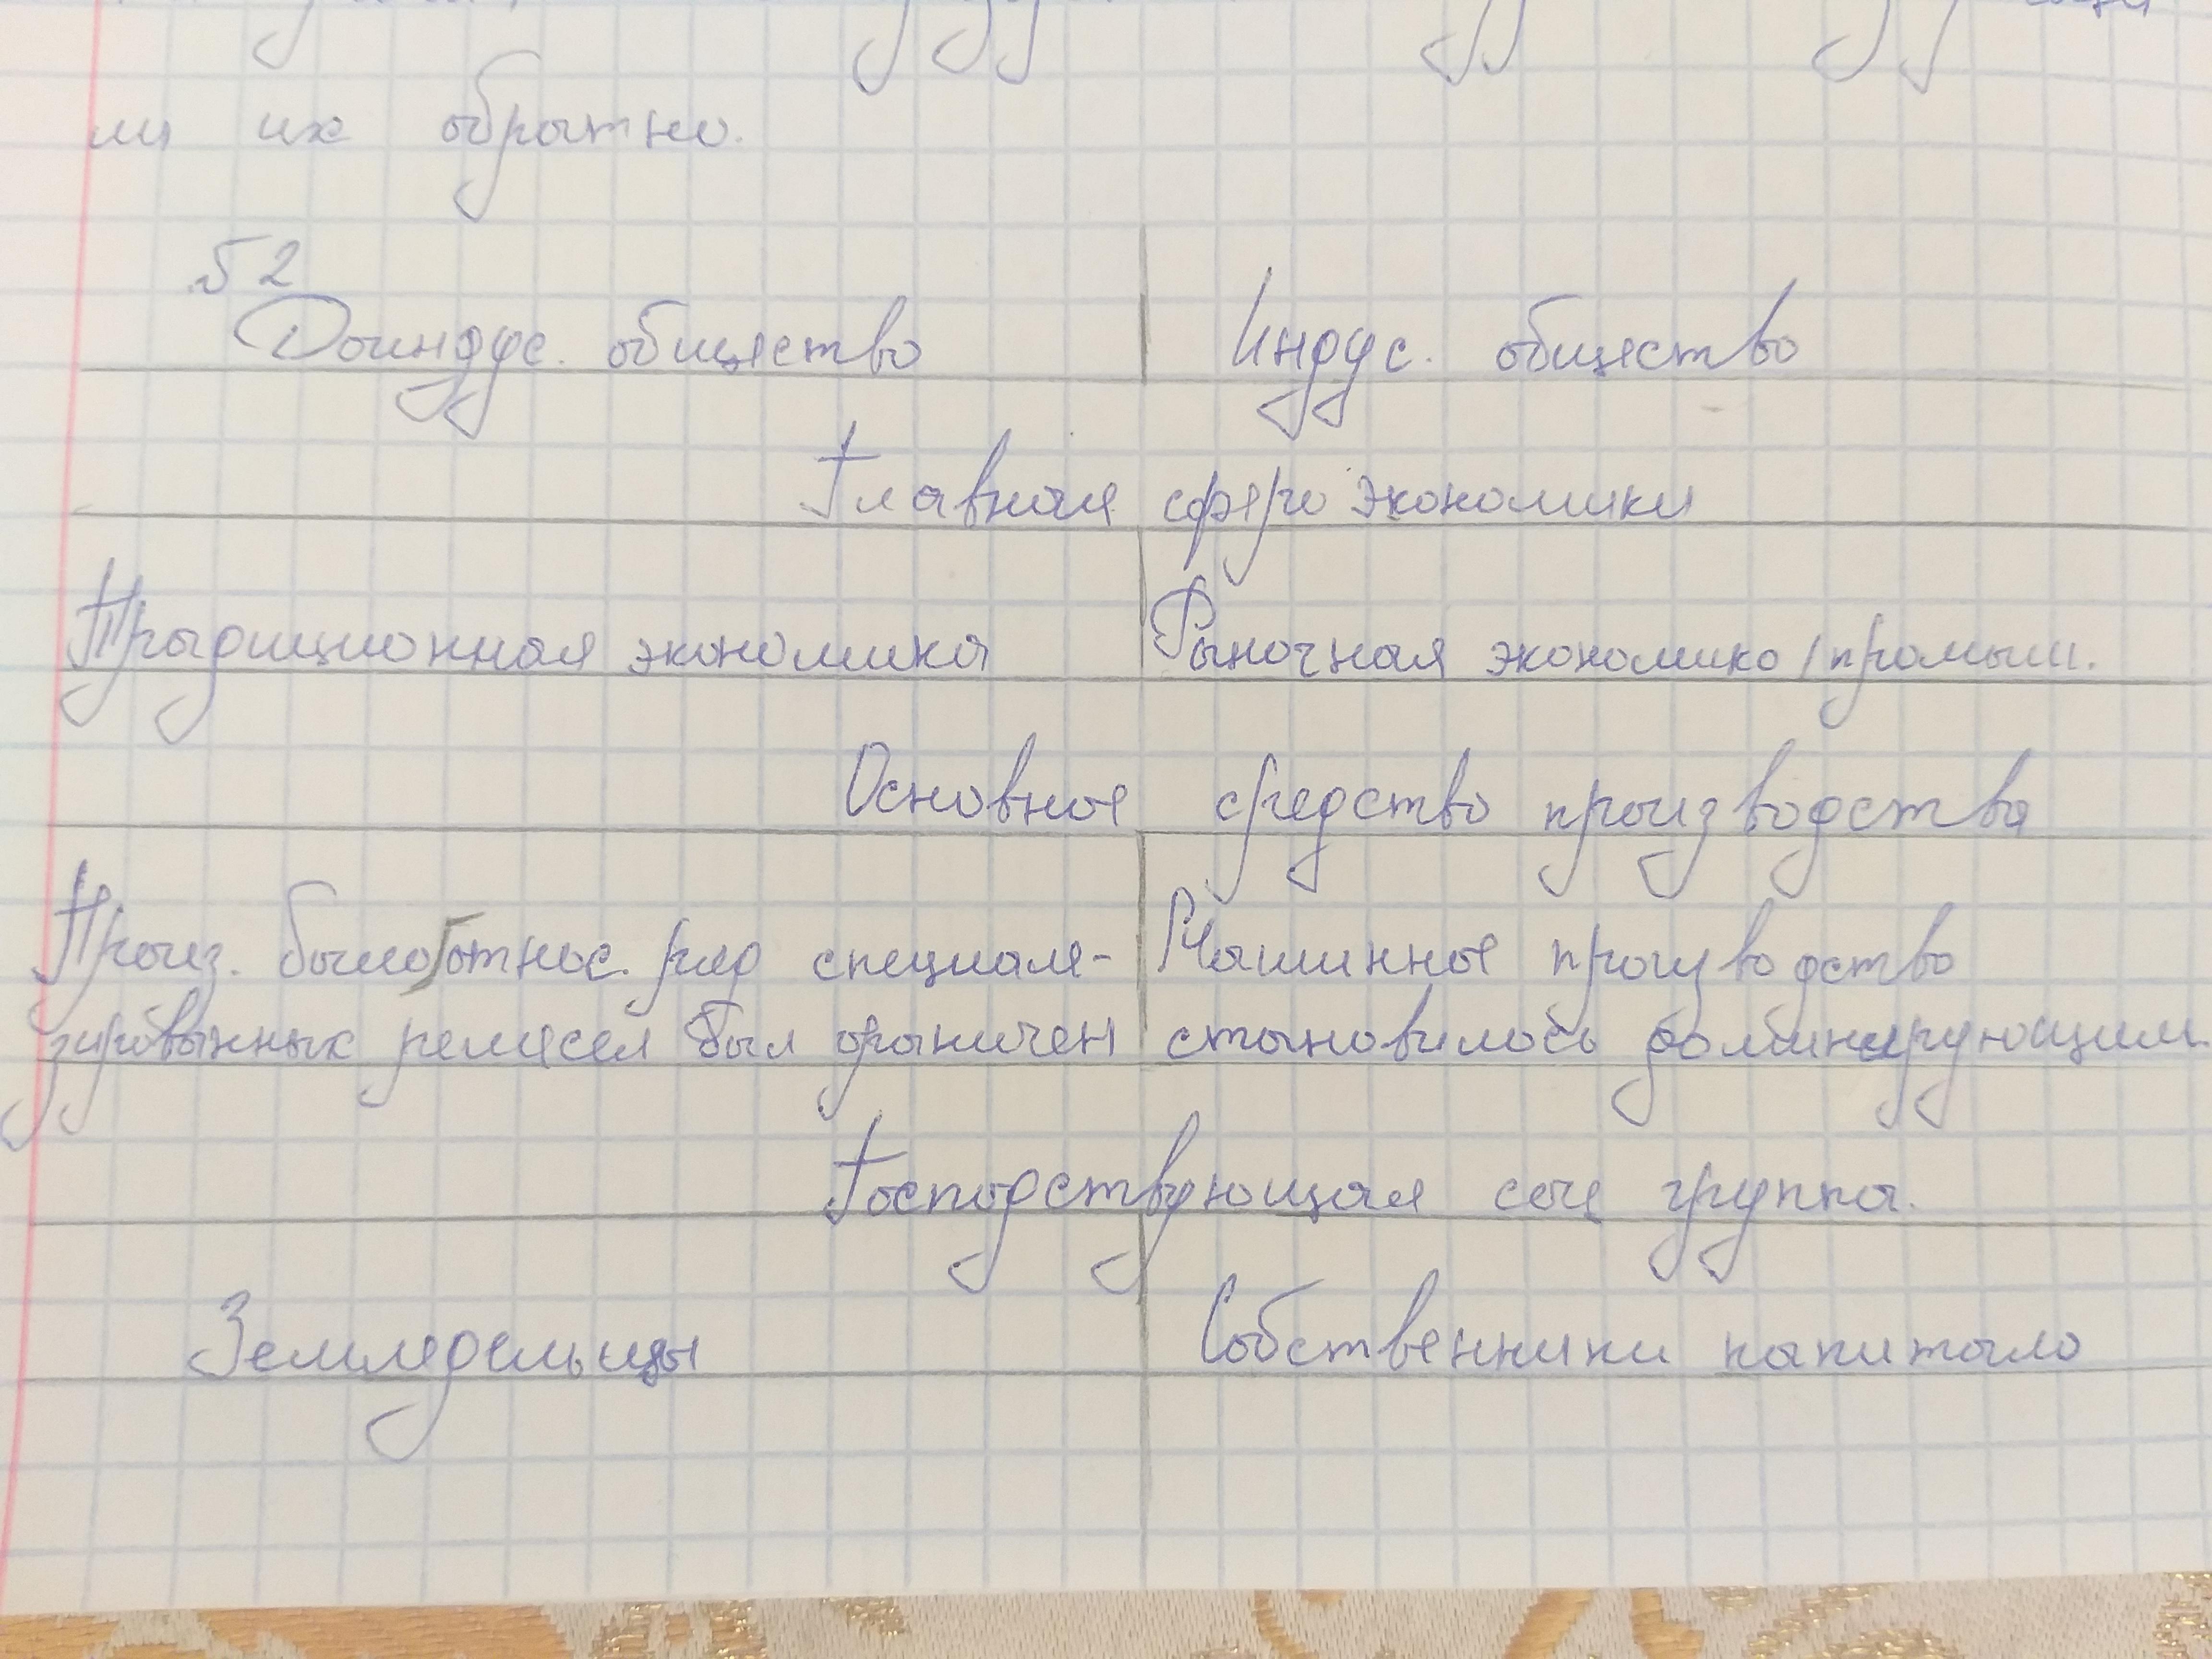 ли их обратно.
§2
Доиндус. общество Индус. общество
Главная сфера экономики
Традиционная экономика Рыночная экономика / промыш.
Основное средство производства
Произ. было относ. ряд специали- Машинное производство
зированных ремесел был ограничен становилось доминирующим
Господствующая соц группа.
Земледельцы Собственники капитала